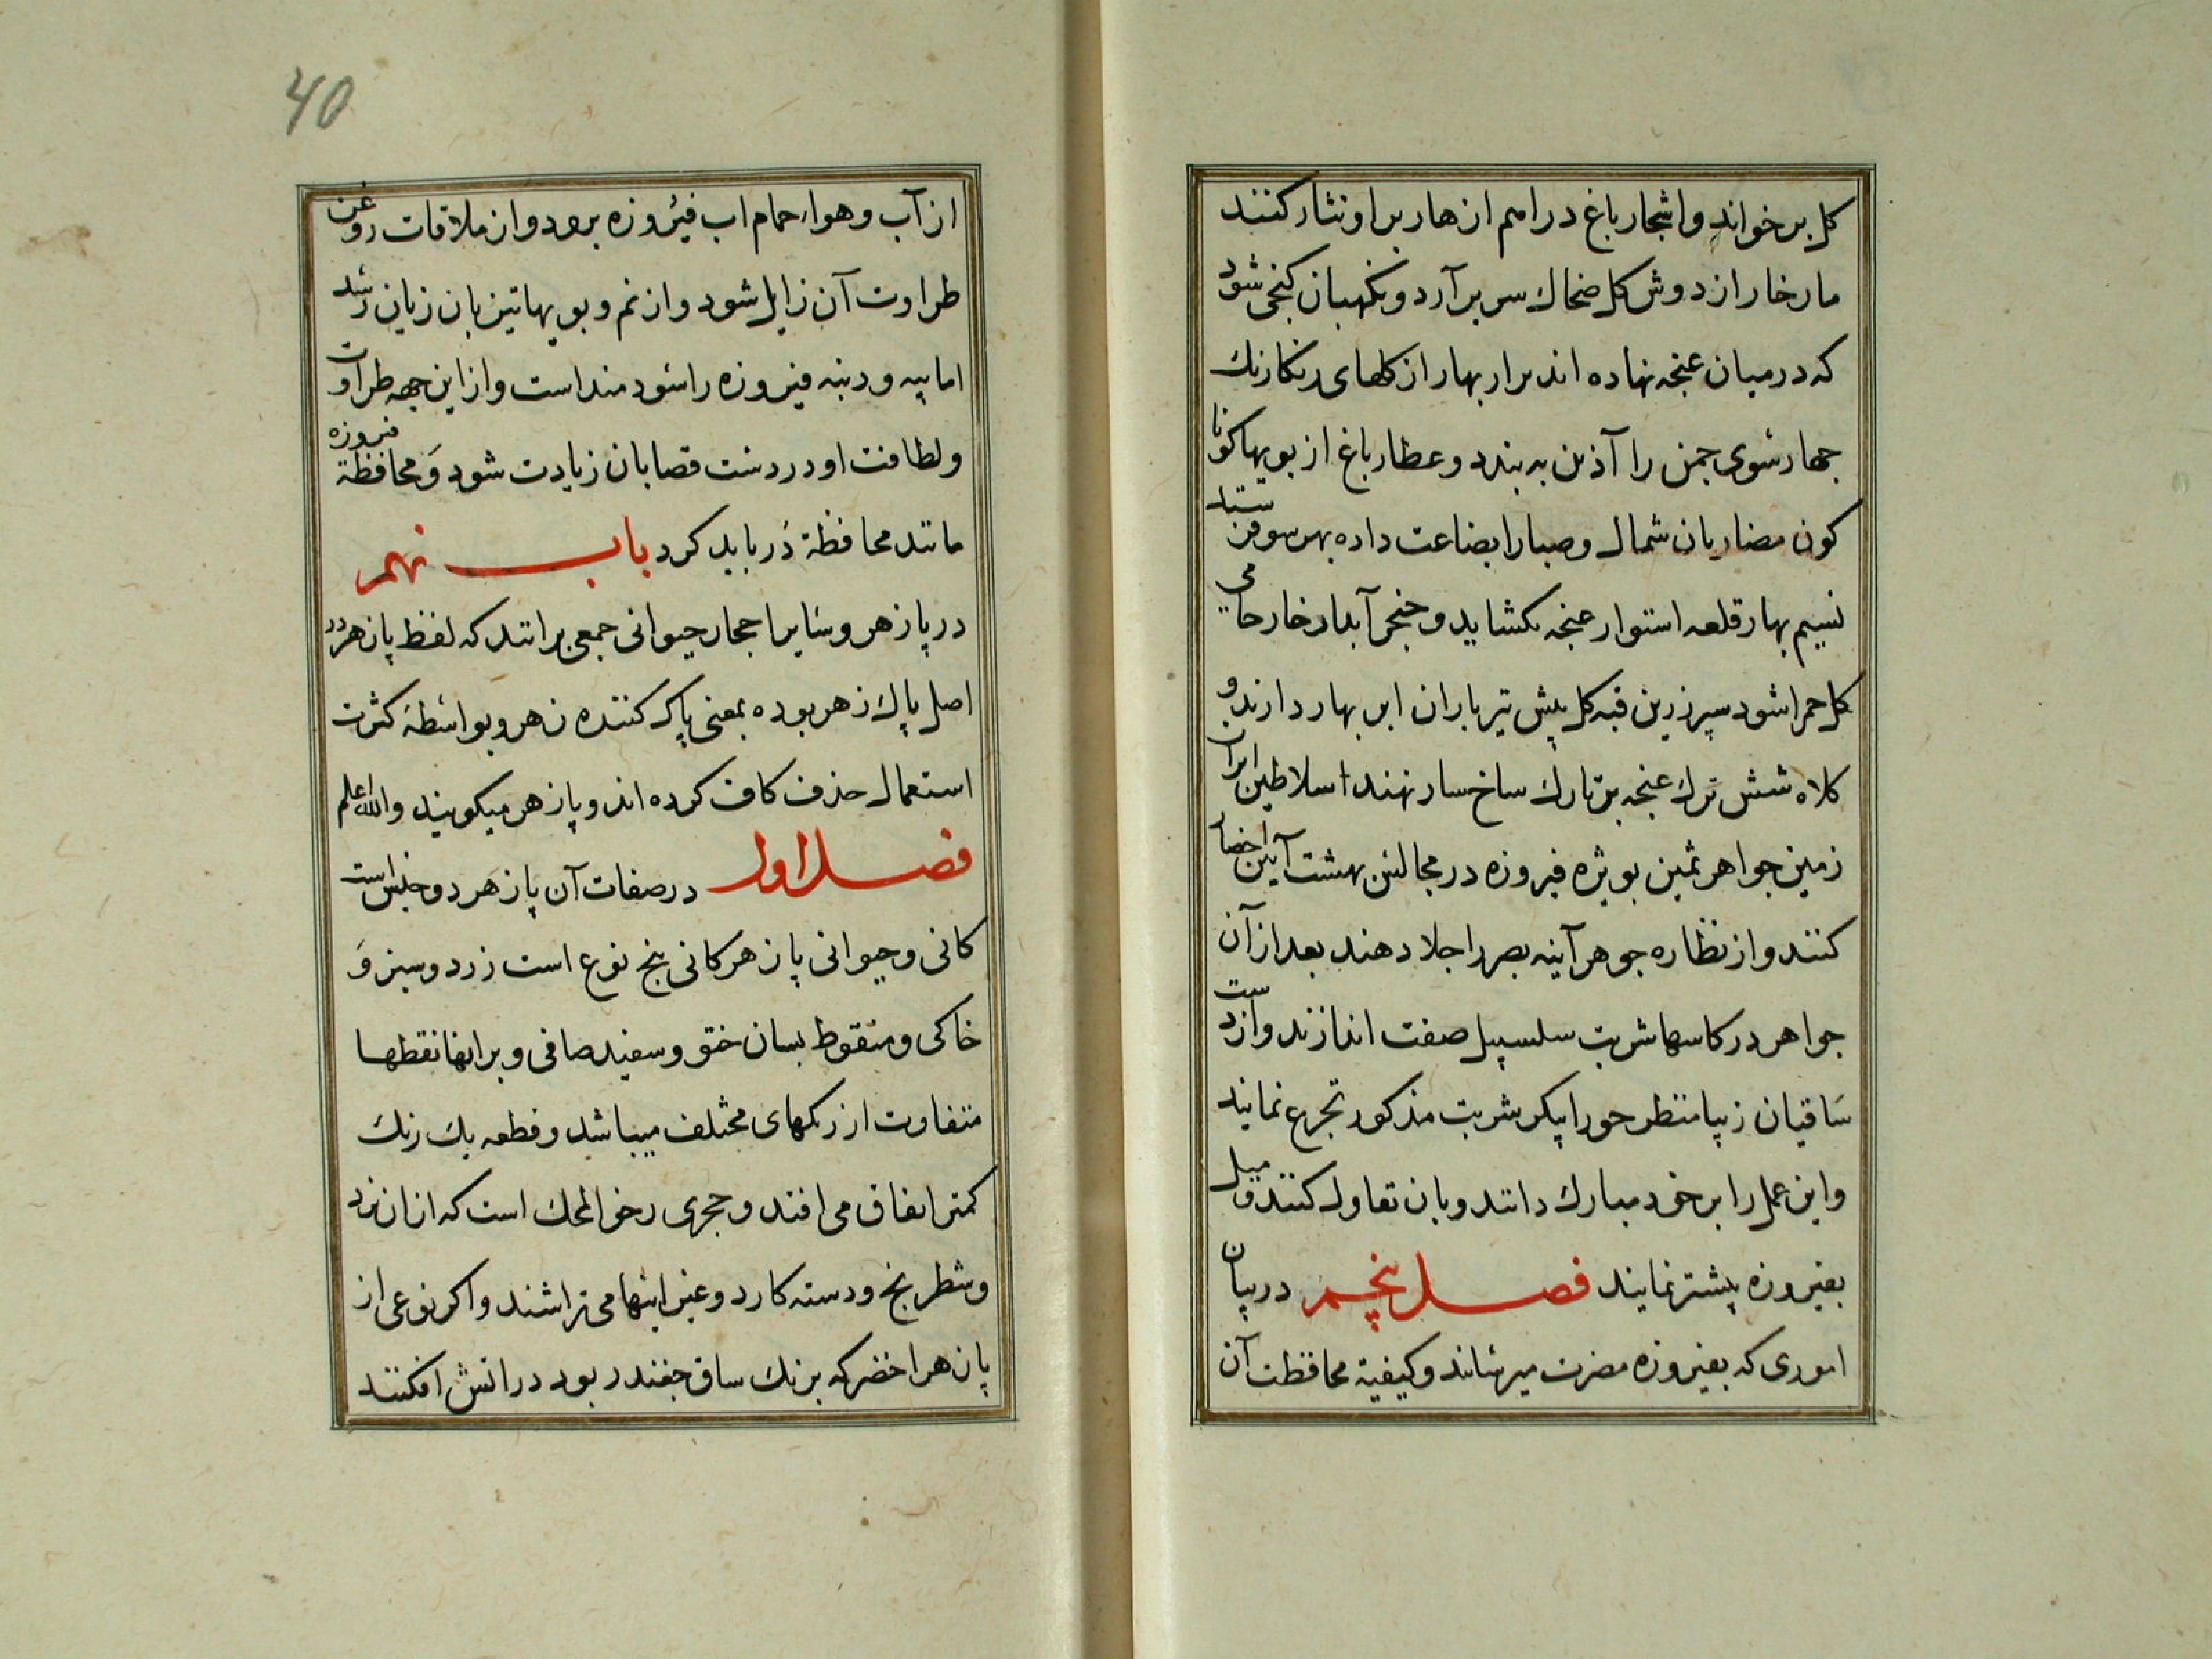 کل برخواند و اشجار باغ دراهم ازهار بر او نثار کنند
مار خار از دوش کل ضحاك سر برآرد و نکهبان کنجی شود
که در میان غنجه نهاده اند برار بهار از کلهای رنکارنك
جهار سوی جمن را آذین به بندد و عطار باغ از بویها کونا
کون مضاربان شمال و صبا را بضاعت داده بهر سو فرستد
نسیم بهار قلعه استوار غنجه بکشاید و خنجر آبدار خار حامی
کل حمرا شود سپر زرین قبه کل پیش تیر باران ابر بهار دارند و
کلاه شش ترك غنجه بر تارك ساخسار نهند اسلاطین ایران
زمین جواهر ثمین بویژه فیروزه در مجالس بهشت آیین احضار
کنند و از نظاره جوهر آینه بصر را جلا دهند بعد از آن
جواهر در کاسها شربت سلسبیل صفت اندازند و از دست
ساقیان زیبا منظر حورا پیکر شربت مذکور تجرع نمایند
و این عمل را بر خود مبارك دانند و بان تفاول کنند و میل
بفیروزه پیشتر نمایند فصل پنچم در بیان
اموری که بفیروزه مضرت میرساند و کیفیة محافظت آن
40
از آب و هوا، حمام اب فیروزه برود و از ملاقات روغن
طراوت آن زایل شود و از نم و بویها تیز بان زیان رسد
اما پیه و دنبه فیروزه را سودمند است و از این جهه طراوت
و لطافت او در دست قصابان زیادت شود و محافظة فیروزه
مانند محافظة دُر باید کرد باب نهم
در پازهر و سایر احجار حیوانی جمعی برانند که لفظ پازهر در
اصل پاك زهر بوده بمعنی پاك کننده زهر و بواسطهٔ کثرت
استعمال حذف کاف کرده اند و پازهر میکویند والله اعلم
فصل اول در صفات آن پازهر دو جنس است
کانی و حیوانی پازهر کانی پنج نوع است زرد و سبز و
خاکی و منقوط بسان ختو و سفید صافی و بر انها نقطها
متفاوت از رنکهای مختلف میباشد و قطعه یك رنك
کمتر اتفاق می افتد و حجری رخو المحك است که از ان نرد
و شطرنج و دسته کارد و غیر اینها می تراشند و اکر نوعی از
پازهر اخضر که برنك ساق جغندر بود در اتش افکنند